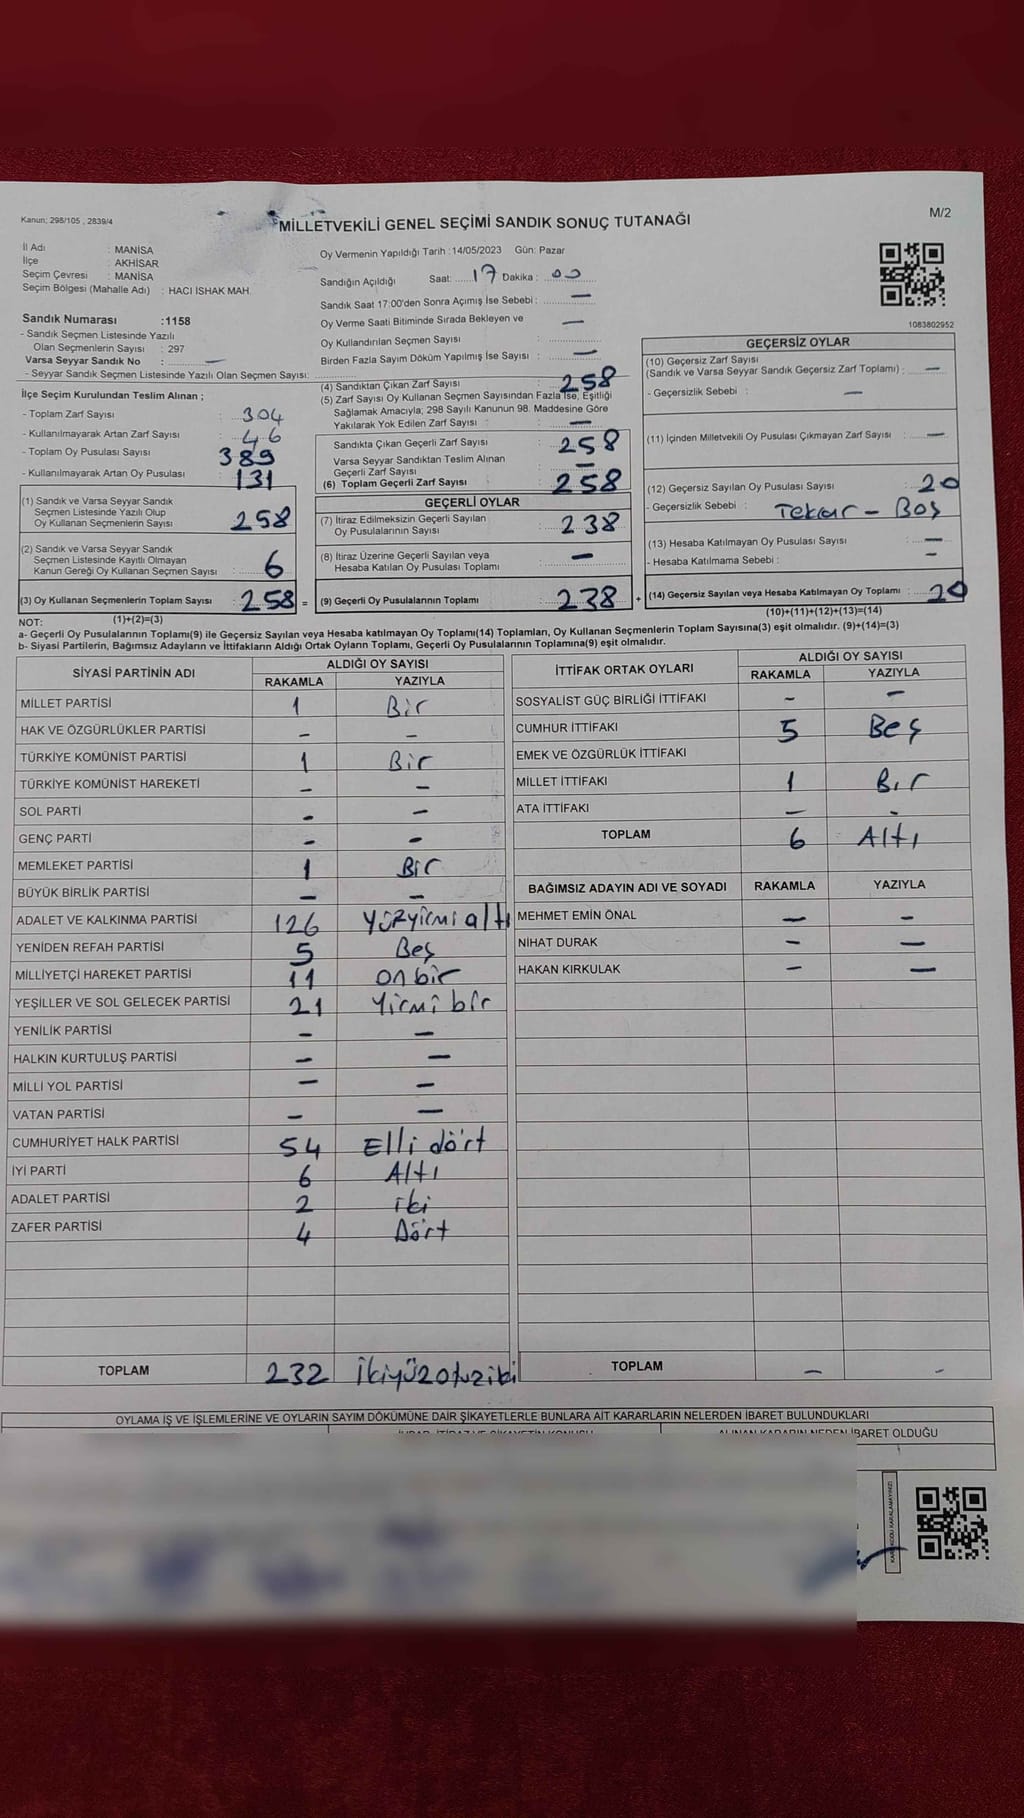 Kanun; 298/105 , 2839/4
MİLLETVEKİLİ GENEL SEÇİMİ SANDIK SONUÇ TUTANAĞI
M/2
İl Adı : MANİSA
İlçe : AKHİSAR
Seçim Çevresi : MANİSA
Seçim Bölgesi (Mahalle Adı) : HACI İSHAK MAH.
Sandık Numarası :1158
- Sandık Seçmen Listesinde Yazılı
Olan Seçmenlerin Sayısı : 297
Varsa Seyyar Sandık No : —
- Seyyar Sandık Seçmen Listesinde Yazılı Olan Seçmen Sayısı:
Oy Vermenin Yapıldığı Tarih : 14/05/2023 Gün: Pazar
Sandığın Açıldığı Saat: 17 Dakika : 00
Sandık Saat 17:00'den Sonra Açımış İse Sebebi : —
Oy Verme Saati Bitiminde Sırada Bekleyen ve
Oy Kullandırılan Seçmen Sayısı : —
Birden Fazla Sayım Döküm Yapılmış İse Sayısı : —
1083802952
İlçe Seçim Kurulundan Teslim Alınan ;
- Toplam Zarf Sayısı : 304
- Kullanılmayarak Artan Zarf Sayısı : 46
- Toplam Oy Pusulası Sayısı : 389
- Kullanılmayarak Artan Oy Pusulası : 131
(1) Sandık ve Varsa Seyyar Sandık
Seçmen Listesinde Yazılı Olup
Oy Kullanan Seçmenlerin Sayısı : 258
(2) Sandık ve Varsa Seyyar Sandık
Seçmen Listesinde Kayıtlı Olmayan
Kanun Gereği Oy Kullanan Seçmen Sayısı : 6
(3) Oy Kullanan Seçmenlerin Toplam Sayısı : 258 =
(1)+(2)=(3)
(4) Sandıktan Çıkan Zarf Sayısı : 258
(5) Zarf Sayısı Oy Kullanan Seçmen Sayısından Fazla İse, Eşitliği
Sağlamak Amacıyla; 298 Sayılı Kanunun 98. Maddesine Göre
Yakılarak Yok Edilen Zarf Sayısı : —
Sandıkta Çıkan Geçerli Zarf Sayısı : 258
Varsa Seyyar Sandıktan Teslim Alınan
Geçerli Zarf Sayısı : —
(6) Toplam Geçerli Zarf Sayısı : 258
GEÇERLİ OYLAR
(7) İtiraz Edilmeksizin Geçerli Sayılan
Oy Pusulalarının Sayısı : 238
(8) İtiraz Üzerine Geçerli Sayılan veya
Hesaba Katılan Oy Pusulası Toplamı : —
(9) Geçerli Oy Pusulalarının Toplamı : 238 +
GEÇERSİZ OYLAR
(10) Geçersiz Zarf Sayısı
(Sandık ve Varsa Seyyar Sandık Geçersiz Zarf Toplamı) : —
- Geçersizlik Sebebi : —
(11) İçinden Milletvekili Oy Pusulası Çıkmayan Zarf Sayısı : —
(12) Geçersiz Sayılan Oy Pusulası Sayısı : 20
- Geçersizlik Sebebi : Tekrar - Boş
(13) Hesaba Katılmayan Oy Pusulası Sayısı : —
- Hesaba Katılmama Sebebi : —
(14) Geçersiz Sayılan veya Hesaba Katılmayan Oy Toplamı : 20
(10)+(11)+(12)+(13)=(14)
NOT:
a- Geçerli Oy Pusulalarının Toplamı(9) ile Geçersiz Sayılan veya Hesaba katılmayan Oy Toplamı(14) Toplamları, Oy Kullanan Seçmenlerin Toplam Sayısına(3) eşit olmalıdır. (9)+(14)=(3)
b- Siyasi Partilerin, Bağımsız Adayların ve İttifakların Aldığı Ortak Oyların Toplamı, Geçerli Oy Pusulalarının Toplamına(9) eşit olmalıdır.
SİYASİ PARTİNİN ADI ALDIĞI OY SAYISI
RAKAMLA YAZIYLA
MİLLET PARTİSİ 1 Bir
HAK VE ÖZGÜRLÜKLER PARTİSİ - -
TÜRKİYE KOMÜNİST PARTİSİ 1 Bir
TÜRKİYE KOMÜNİST HAREKETİ - -
SOL PARTİ - -
GENÇ PARTİ - -
MEMLEKET PARTİSİ 1 Bir
BÜYÜK BİRLİK PARTİSİ - -
ADALET VE KALKINMA PARTİSİ 126 Yüzyirmi altı
YENİDEN REFAH PARTİSİ 5 Beş
MİLLİYETÇİ HAREKET PARTİSİ 11 on bir
YEŞİLLER VE SOL GELECEK PARTİSİ 21 Yirmi bir
YENİLİK PARTİSİ - -
HALKIN KURTULUŞ PARTİSİ - -
MİLLİ YOL PARTİSİ - -
VATAN PARTİSİ - -
CUMHURİYET HALK PARTİSİ 54 Elli dört
İYİ PARTİ 6 Altı
ADALET PARTİSİ 2 iki
ZAFER PARTİSİ 4 Dört
TOPLAM 232 İkiyüzotuziki
İTTİFAK ORTAK OYLARI ALDIĞI OY SAYISI
RAKAMLA YAZIYLA
SOSYALİST GÜÇ BİRLİĞİ İTTİFAKI - -
CUMHUR İTTİFAKI 5 Beş
EMEK VE ÖZGÜRLÜK İTTİFAKI
MİLLET İTTİFAKI 1 Bir
ATA İTTİFAKI - -
TOPLAM 6 Altı
BAĞIMSIZ ADAYIN ADI VE SOYADI RAKAMLA YAZIYLA
MEHMET EMİN ÖNAL - -
NİHAT DURAK - -
HAKAN KIRKULAK - -
TOPLAM - -
OYLAMA İŞ VE İŞLEMLERİNE VE OYLARIN SAYIM DÖKÜMÜNE DAİR ŞİKAYETLERLE BUNLARA AİT KARARLARIN NELERDEN İBARET BULUNDUKLARI
ALINAN KARARIN NEDEN İBARET OLDUĞU